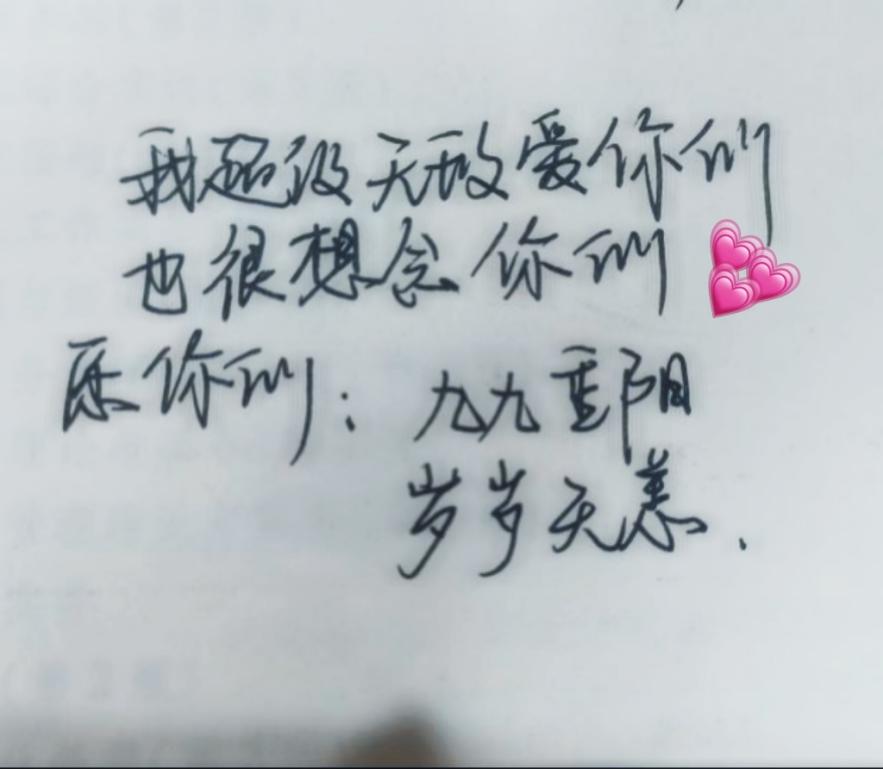 我超级无敌爱你们
也很想念你们
愿你们：九九重阳
岁岁无恙.